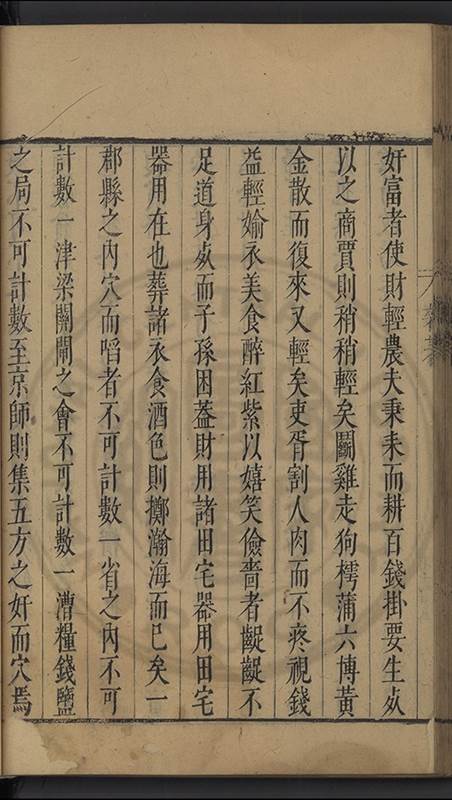 奸富者使財輕農夫秉耒而耕百錢掛要生𣦸
以之商賈則稍稍輕矣鬭雞走狗樗蒲六博黃
金散而復來又輕矣吏胥割人肉而不疼視錢
益輕婾衣美食醉紅紫以嬉笑儉嗇者齪齪不
足道身𣦸而子孫困蓋財用諸田宅器用田宅
器用在也葬諸衣食酒色則擲瀚海而已矣一
郡縣之內穴而啗者不可計數一省之內不可
計數一津梁關閘之會不可計數一漕糧錢鹽
之局不可計數至京師則集五方之奸而穴焉